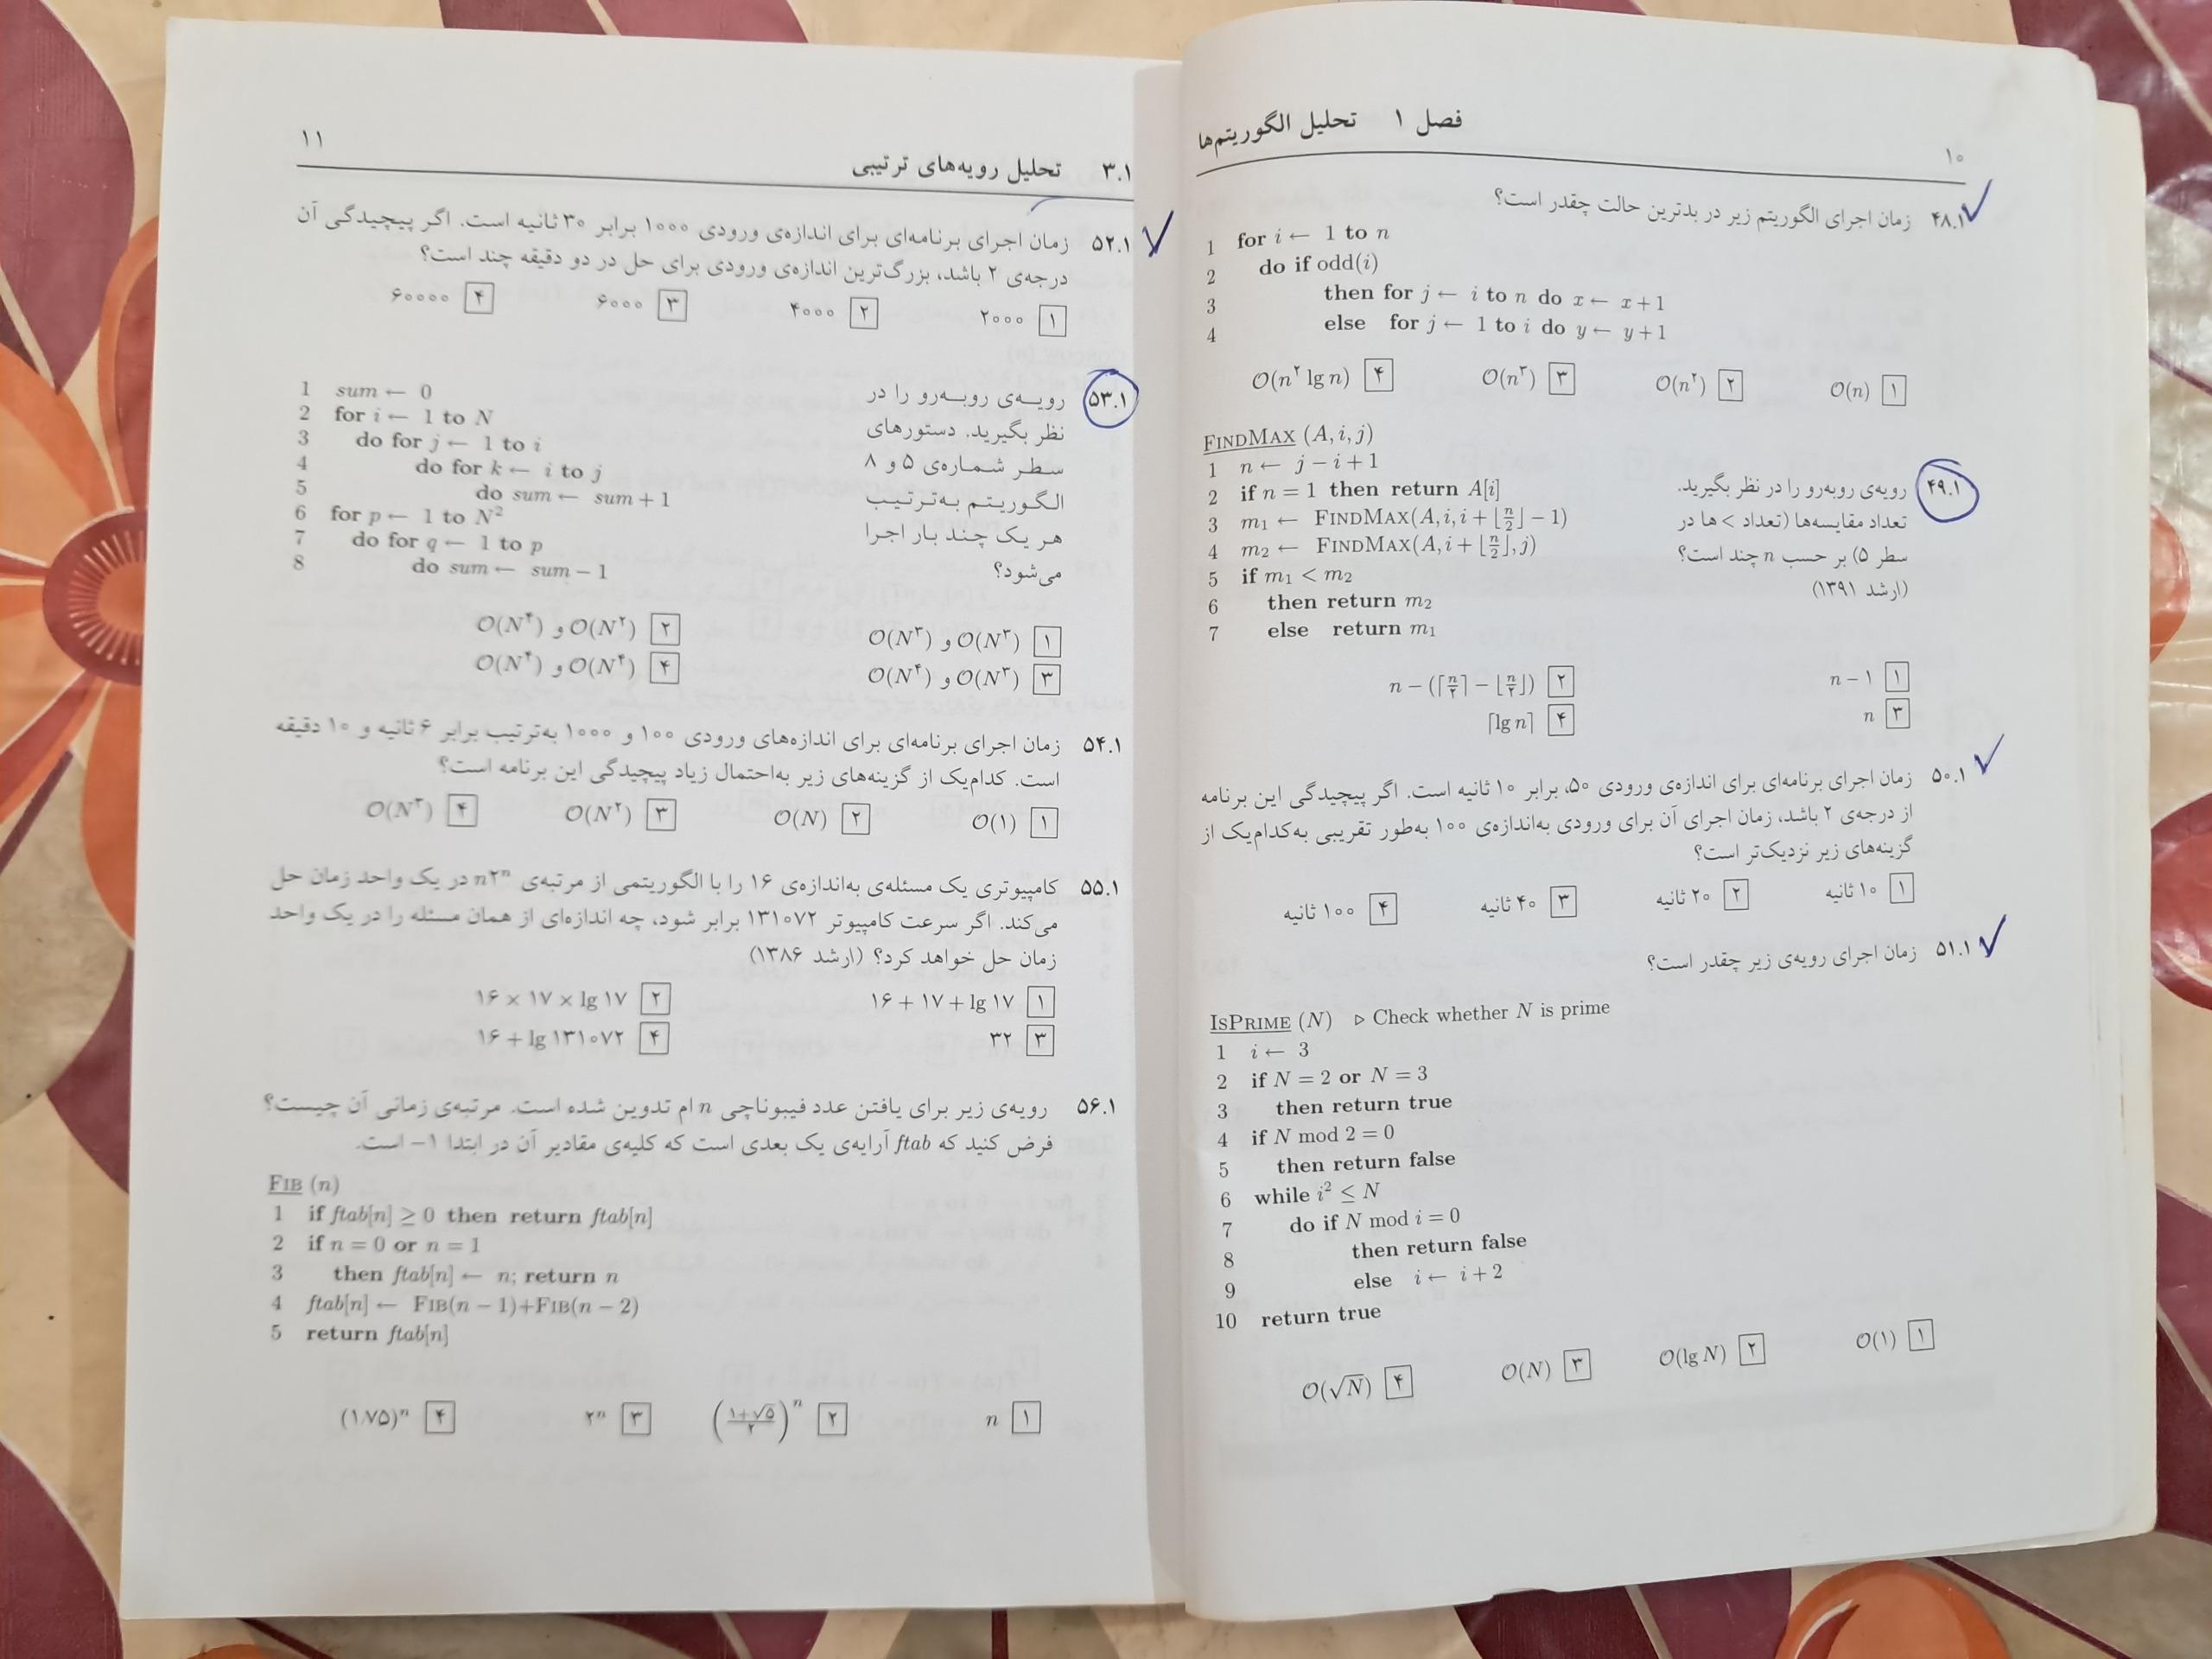 فصل ۱ تحلیل الگوریتم‌ها
۱۰
۴۸.۱ زمان اجرای الگوریتم زیر در بدترین حالت چقدر است؟
1 for i ← 1 to n
2 do if odd(i)
3 then for j ← i to n do x ← x + 1
4 else for j ← 1 to i do y ← y + 1
۱ O(n) ۲ O(n^۲) ۳ O(n^۳) ۴ O(n^۲ lg n)
۴۹.۱ رویه‌ی روبه‌رو را در نظر بگیرید.
تعداد مقایسه‌ها (تعداد < ها در
سطر ۵) بر حسب n چند است؟
(ارشد ۱۳۹۱)
FINDMAX (A, i, j)
1 n ← j − i + 1
2 if n = 1 then return A[i]
3 m₁ ← FINDMAX(A, i, i + ⌊n/2⌋ − 1)
4 m₂ ← FINDMAX(A, i + ⌊n/2⌋, j)
5 if m₁ < m₂
6 then return m₂
7 else return m₁
۱ n − ۱ ۲ n − (⌈n/۲⌉ − ⌊n/۲⌋)
۳ n ۴ ⌈lg n⌉
۵۰.۱ زمان اجرای برنامه‌ای برای اندازه‌ی ورودی ۵۰، برابر ۱۰ ثانیه است. اگر پیچیدگی این برنامه
از درجه‌ی ۲ باشد، زمان اجرای آن برای ورودی به‌اندازه‌ی ۱۰۰ به‌طور تقریبی به‌کدام‌یک از
گزینه‌های زیر نزدیک‌تر است؟
۱ ۱۰ ثانیه ۲ ۲۰ ثانیه ۳ ۴۰ ثانیه ۴ ۱۰۰ ثانیه
۵۱.۱ زمان اجرای رویه‌ی زیر چقدر است؟
ISPRIME (N) ▷ Check whether N is prime
1 i ← 3
2 if N = 2 or N = 3
3 then return true
4 if N mod 2 = 0
5 then return false
6 while i² ≤ N
7 do if N mod i = 0
8 then return false
9 else i ← i + 2
10 return true
۱ O(۱) ۲ O(lg N) ۳ O(N) ۴ O(√N)
۳.۱ تحلیل رویه‌های ترتیبی
۱۱
۵۲.۱ زمان اجرای برنامه‌ای برای اندازه‌ی ورودی ۱۰۰۰ برابر ۳۰ ثانیه است. اگر پیچیدگی آن
درجه‌ی ۲ باشد، بزرگ‌ترین اندازه‌ی ورودی برای حل در دو دقیقه چند است؟
۱ ۲۰۰۰ ۲ ۴۰۰۰ ۳ ۶۰۰۰ ۴ ۶۰۰۰۰
۵۳.۱ رویه‌ی روبه‌رو را در
نظر بگیرید. دستورهای
سطر شماره‌ی ۵ و ۸
الگوریتم به‌ترتیب
هر یک چند بار اجرا
می‌شود؟
1 sum ← 0
2 for i ← 1 to N
3 do for j ← 1 to i
4 do for k ← i to j
5 do sum ← sum + 1
6 for p ← 1 to N²
7 do for q ← 1 to p
8 do sum ← sum − 1
۱ O(N^۳) و O(N^۳) ۲ O(N^۲) و O(N^۴)
۳ O(N^۳) و O(N^۴) ۴ O(N^۴) و O(N^۴)
۵۴.۱ زمان اجرای برنامه‌ای برای اندازه‌های ورودی ۱۰۰ و ۱۰۰۰ به‌ترتیب برابر ۶ ثانیه و ۱۰ دقیقه
است. کدام‌یک از گزینه‌های زیر به‌احتمال زیاد پیچیدگی این برنامه است؟
۱ O(۱) ۲ O(N) ۳ O(N^۲) ۴ O(N^۳)
۵۵.۱ کامپیوتری یک مسئله‌ی به‌اندازه‌ی ۱۶ را با الگوریتمی از مرتبه‌ی n۲^n در یک واحد زمان حل
می‌کند. اگر سرعت کامپیوتر ۱۳۱۰۷۲ برابر شود، چه اندازه‌ای از همان مسئله را در یک واحد
زمان حل خواهد کرد؟ (ارشد ۱۳۸۶)
۱ ۱۶ + ۱۷ + lg ۱۷ ۲ ۱۶ × ۱۷ × lg ۱۷
۳ ۳۲ ۴ ۱۶ + lg ۱۳۱۰۷۲
۵۶.۱ رویه‌ی زیر برای یافتن عدد فیبوناچی n ام تدوین شده است. مرتبه‌ی زمانی آن چیست؟
فرض کنید که ftab آرایه‌ی یک بعدی است که کلیه‌ی مقادیر آن در ابتدا ۱− است.
FIB (n)
1 if ftab[n] ≥ 0 then return ftab[n]
2 if n = 0 or n = 1
3 then ftab[n] ← n; return n
4 ftab[n] ← FIB(n − 1)+FIB(n − 2)
5 return ftab[n]
۱ n ۲ ((۱+√۵)/۲)^n ۳ ۲^n ۴ (۱.۷۵)^n